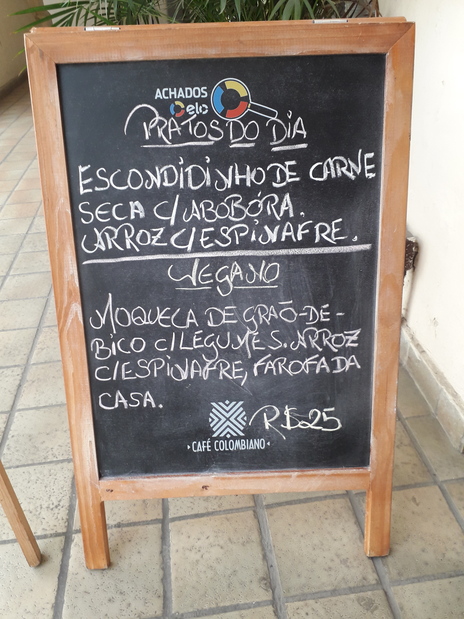 ACHADOS
elo
PRATOS DO DIA
ESCONDIDINHO DE CARNE
SECA C/ ABOBÓRA.
ARROZ C/ ESPINAFRE.
VEGANO
MOQUECA DE GRAÕ-DE-
BICO C/ LEGUMES. ARROZ
C/ ESPINAFRE, FAROFA DA
CASA.
R$25
CAFÉ COLOMBIANO